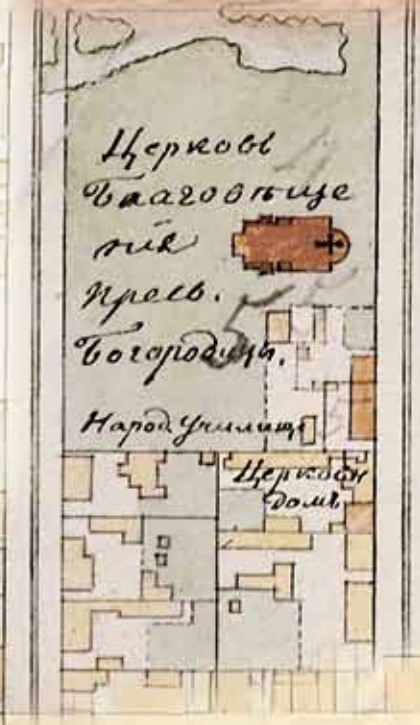 Церковь
Благовѣще
нія
Пресв.
Богородицы.
5
Народ. Училищ
Церковн
домъ